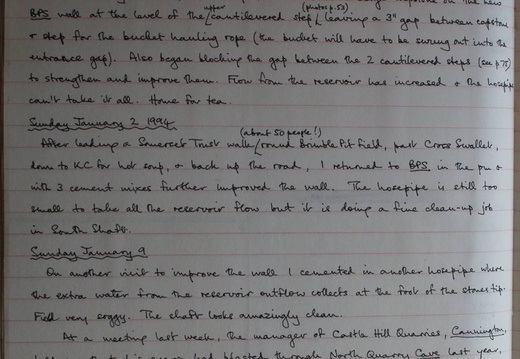 BPS wall at the level of the upper cantilevered step (photos p.53) leaving a 3" gap between capstone
+ step for the bucket hauling rope (the bucket will have to be swung out into the
entrance gap). Also began blocking the gap between the 2 cantilevered steps (see p 75)
to strengthen and improve them. Flow from the reservoir has increased + the hosepipe
can't take it all. Home for tea.
Sunday January 2 1994
After leading a Somerset Trust walk (about 50 people!) round Brimble Pit field, past Cross Swallet,
down to KC for hot soup, + back up the road, I returned to BPS in the pm +
with 3 cement mixes further improved the wall. The hosepipe is still too
small to take all the reservoir flow but it is doing a fine clean-up job
in South Shaft.
Sunday January 9
On another visit to improve the wall I cemented in another hosepipe where
the extra water from the reservoir outflow collects at the foot of the stones tip.
Field very soggy. The shaft looks amazingly clean.
At a meeting last week, the manager of Castle Hill Quarries, Cannington,
had blasted through North Quarry Cave last year,